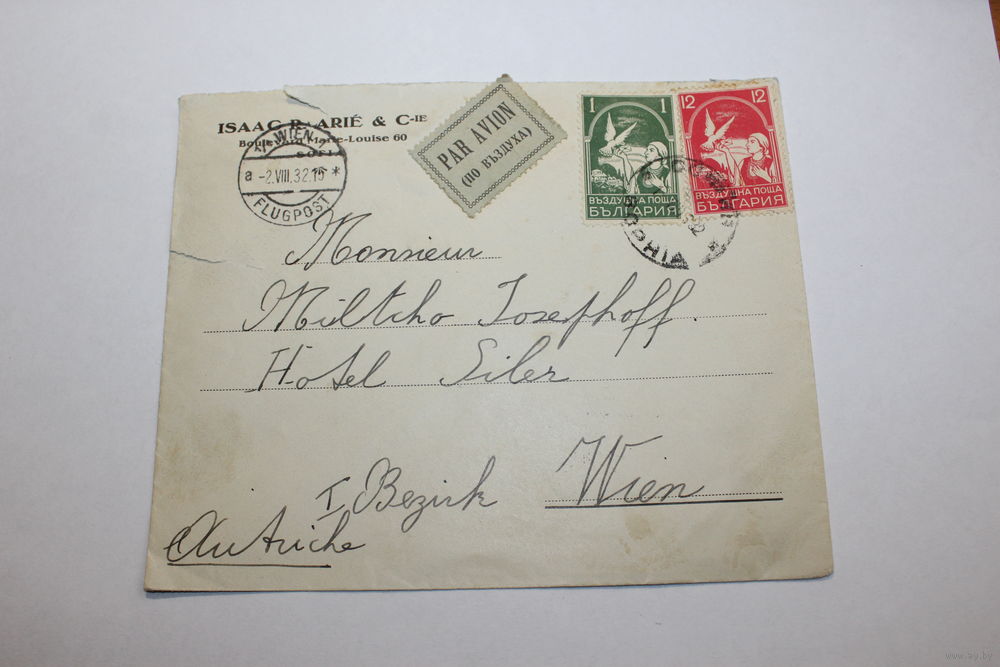 ISAAC ARIÉ & C-IE
Boulevard Marie-Louise 60
SOFIA
WIEN
a -2.VIII.32.
FLUGPOST
PAR AVION
(ПО ВЪЗДУХА)
1 1
ВЪЗДУШНА ПОЩА
БЪЛГАРИЯ
12 12
ВЪЗДУШНА ПОЩА
БЪЛГАРИЯ
Monsieur
Miltcho Josephoff.
Hotel Siler
I. Bezirk Wien
Autriche
www.ay.by